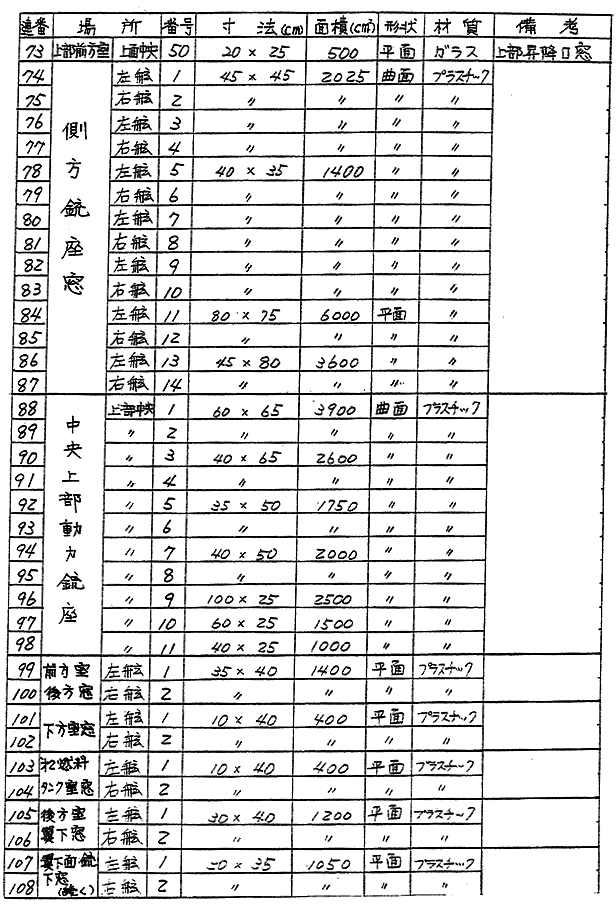 連番 場所 番号 寸法(cm) 面積(cm²) 形状 材質 備考
73 上部前方室 上面中央 50 20×25 500 平面 ガラス 上部昇降口窓
側方銃座窓
74 左舷 1 45×45 2025 曲面 プラスチック
75 右舷 2 〃 〃 〃 〃
76 左舷 3 〃 〃 〃 〃
77 右舷 4 〃 〃 〃 〃
78 左舷 5 40×35 1400 〃 〃
79 右舷 6 〃 〃 〃 〃
80 左舷 7 〃 〃 〃 〃
81 右舷 8 〃 〃 〃 〃
82 左舷 9 〃 〃 〃 〃
83 右舷 10 〃 〃 〃 〃
84 左舷 11 80×75 6000 平面 〃
85 右舷 12 〃 〃 〃 〃
86 左舷 13 45×80 3600 〃 〃
87 右舷 14 〃 〃 〃 〃
中央上部動力銃座
88 上部中央 1 60×65 3900 曲面 プラスチック
89 〃 2 〃 〃 〃 〃
90 〃 3 40×65 2600 〃 〃
91 〃 4 〃 〃 〃 〃
92 〃 5 35×50 1750 〃 〃
93 〃 6 〃 〃 〃 〃
94 〃 7 40×50 2000 〃 〃
95 〃 8 〃 〃 〃 〃
96 〃 9 100×25 2500 〃 〃
97 〃 10 60×25 1500 〃 〃
98 〃 11 40×25 1000 〃 〃
99 前方室 左舷 1 35×40 1400 平面 プラスチック
100 後方窓 右舷 2 〃 〃 〃 〃
101 下方室窓 左舷 1 10×40 400 平面 プラスチック
102 右舷 2 〃 〃 〃 〃
103 燃料 左舷 1 10×40 400 平面 プラスチック
104 タンク室窓 右舷 2 〃 〃 〃 〃
105 後方室 左舷 1 30×40 1200 平面 プラスチック
106 翼下窓 右舷 2 〃 〃 〃 〃
107 翼下面銃 左舷 1 30×35 1050 平面 プラスチック
108 下窓 右舷 2 〃 〃 〃 〃